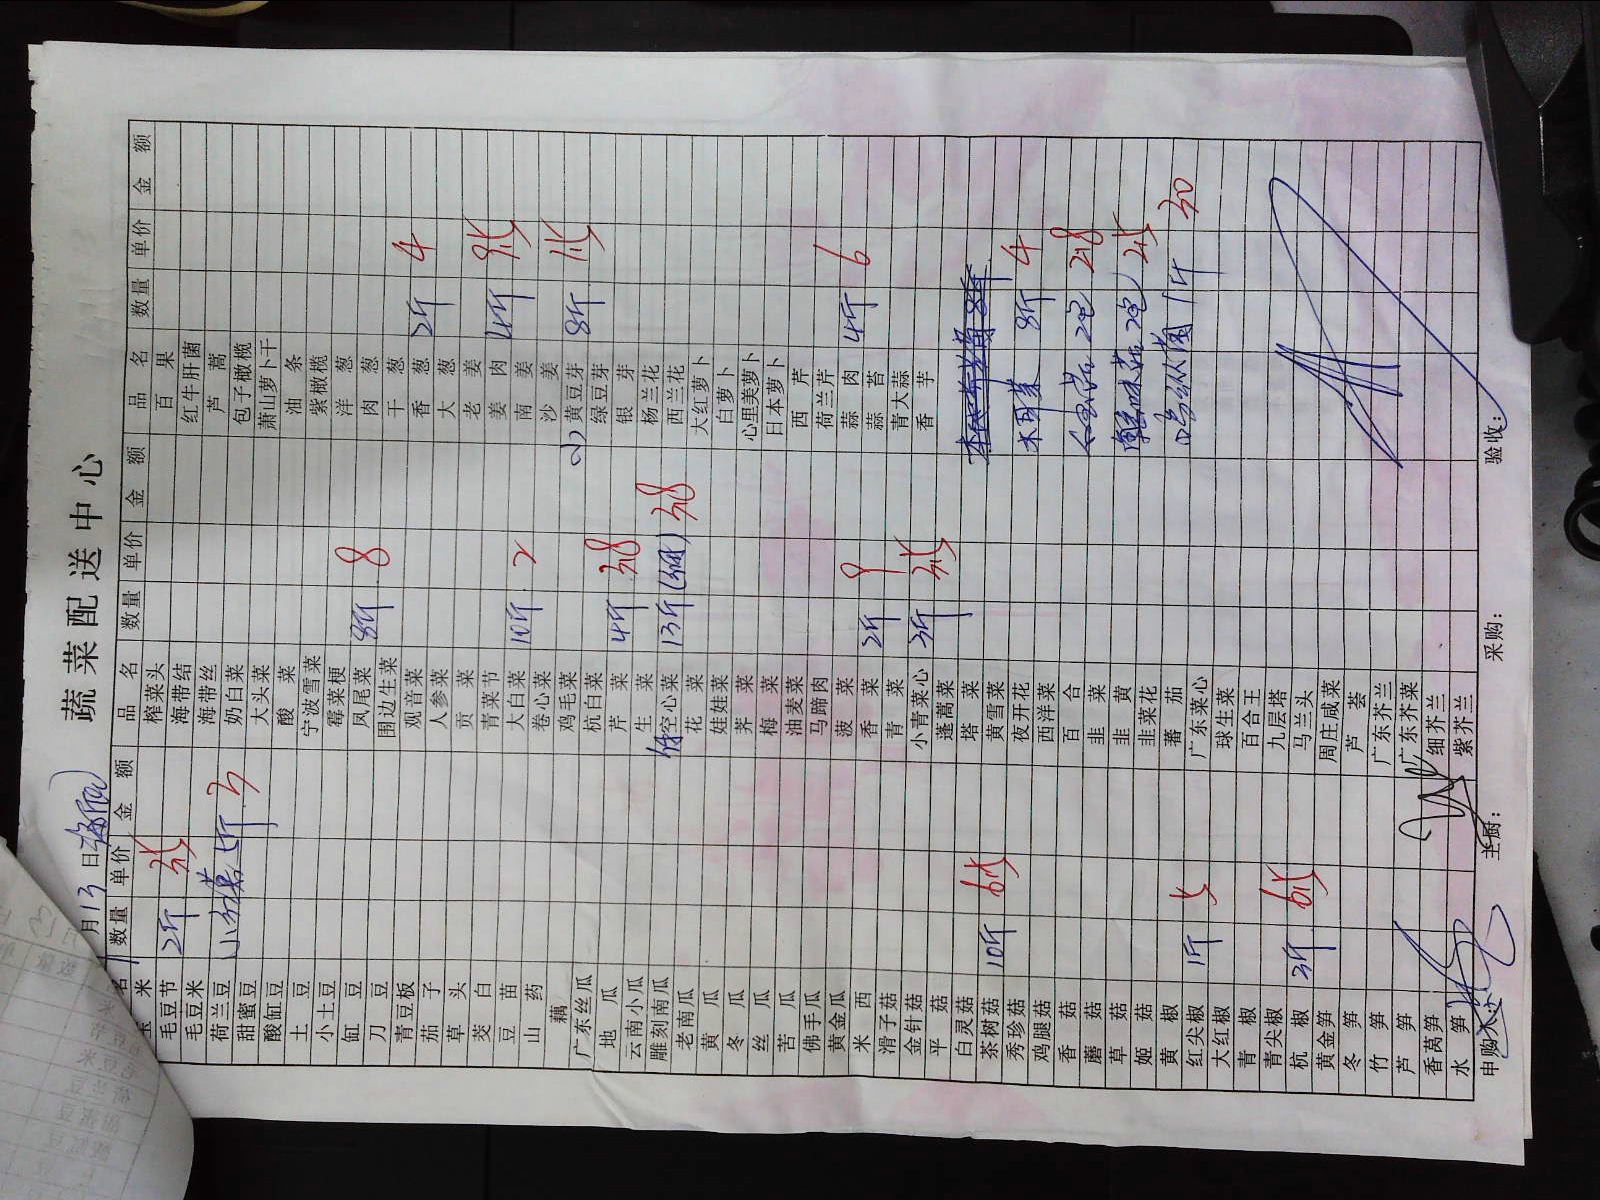 蔬菜配送中心
月13日
名 数量 单价 金额 品名 数量 单价 金额 品名 数量 单价 金额
玉米 榨菜头 百果
毛豆节 2斤 海带结 红牛肝菌
毛豆米 海带丝 芦蒿
荷兰豆 奶白菜 包子橄榄
甜蜜豆 大头菜 萧山萝卜干
酸缸豆 酸菜 油条
土豆 宁波雪菜 紫橄榄
小土豆 霉菜梗 洋葱
缸豆 凤尾菜 8斤 8 肉葱
刀豆 围边生菜 干葱
青豆板 观音菜 香葱 2斤 4
茄子 人参菜 大葱
草头 贡菜 老姜
茭白 青菜节 姜肉 4斤
豆苗 大白菜 10斤 2 南姜
山药 卷心菜 沙姜
藕 鸡毛菜 黄豆芽 8斤
广东丝瓜 杭白菜 绿豆芽
地瓜 芹菜 4斤 3.8 银芽
云南小瓜 生菜 杨兰花
雕刻南瓜 空心菜 13斤 3.8 西兰花
老南瓜 花菜 大红萝卜
黄瓜 娃娃菜 白萝卜
冬瓜 荠菜 心里美萝卜
丝瓜 梅菜 日本萝卜
苦瓜 油麦菜 西芹
佛手瓜 马蹄肉 荷兰芹
黄金瓜 菠菜 蒜肉 4斤 6
米西 香菜 2斤 9 蒜苔
滑子菇 青菜 青大蒜
金针菇 小青菜心 3斤 香芋
平菇 蓬蒿菜
白灵菇 塔菜
茶树菇 10斤 黄雪菜
秀珍菇 夜开花 8斤 4
鸡腿菇 西洋菜
香菇 百合 2包 2.8
蘑菇 韭菜
草菇 韭黄 2包
姬菇 韭菜花
黄椒 蕃茄 1斤 30
红尖椒 1斤 广东菜心
大红椒 球生菜
青椒 百合王
青尖椒 九层塔
杭椒 3斤 马兰头
黄金笋 周庄咸菜
冬笋 芦荟
竹笋 广东芥兰
芦笋 广东芥菜
香莴笋 细芥兰
水笋 紫芥兰
申购: 主厨: 采购: 验收: